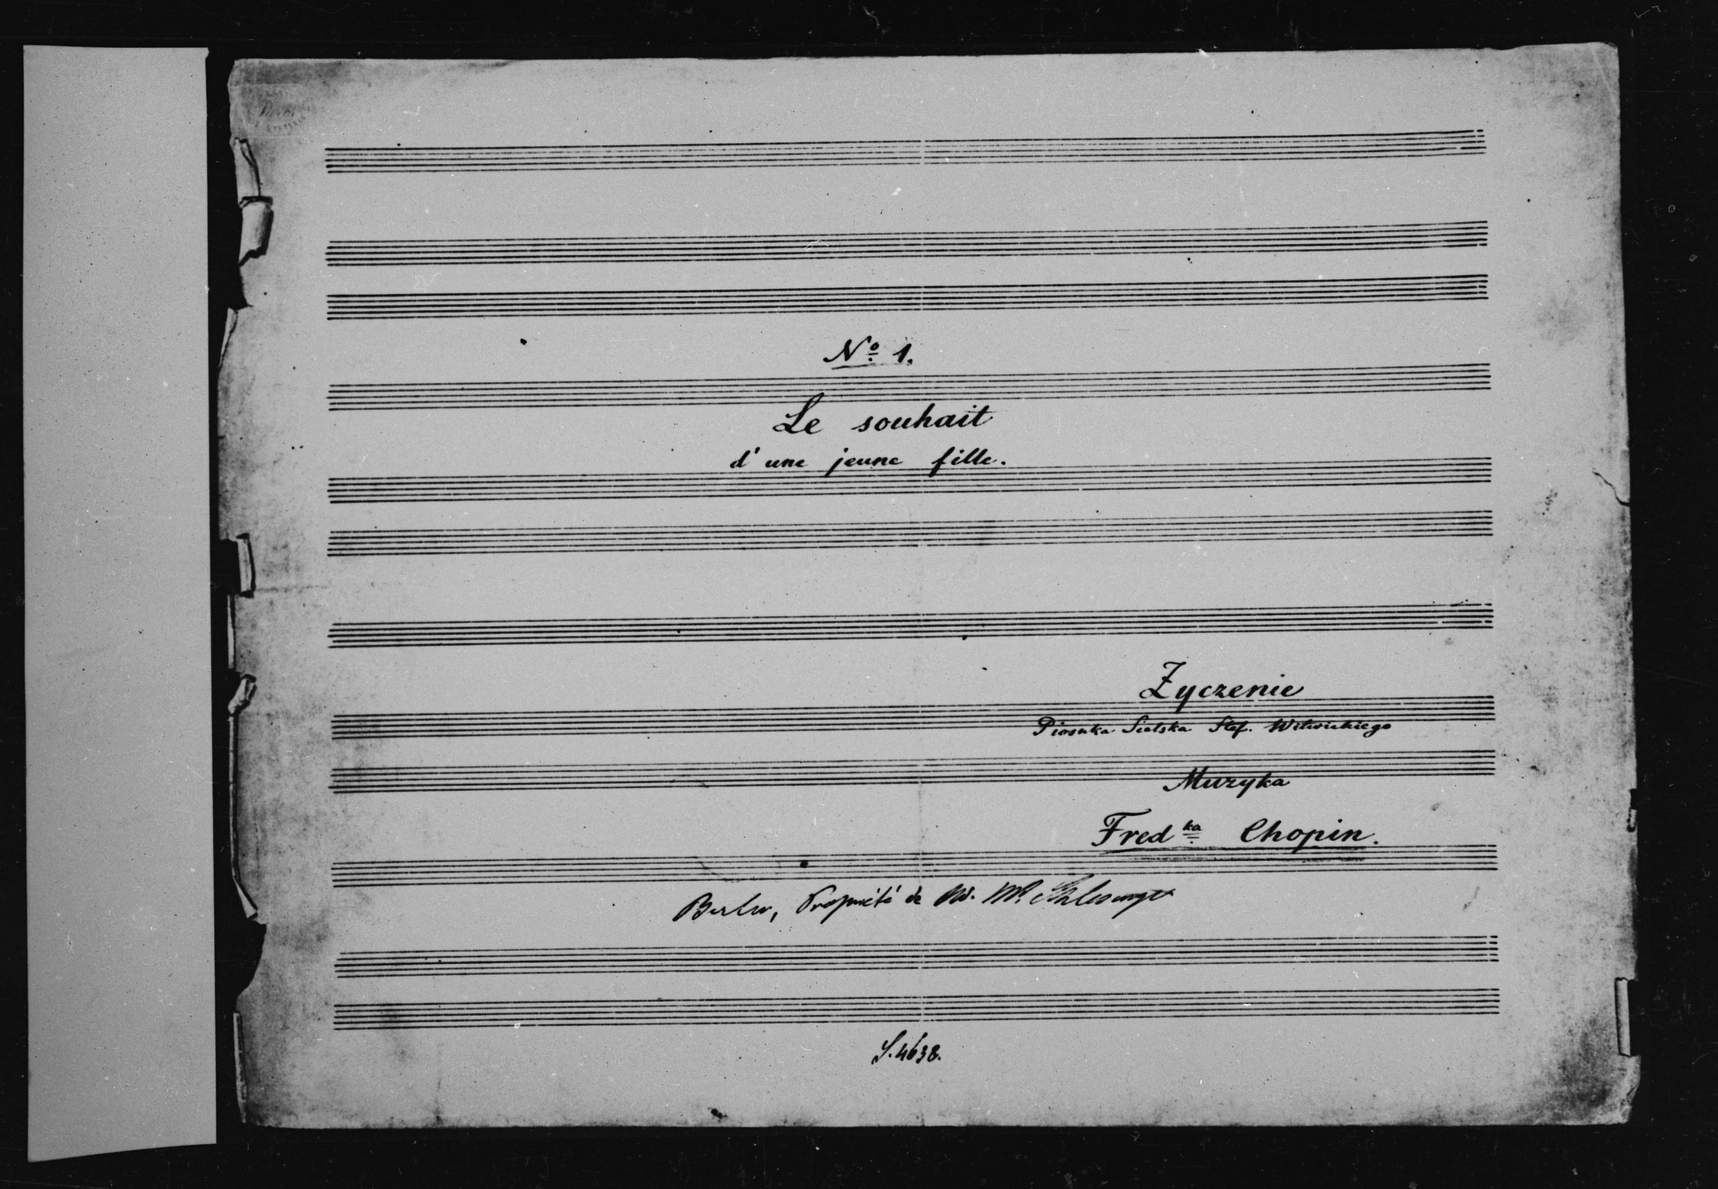 Nº 1.
Le souhait
d'une jeune fille.
Życzenie
Piosnka Sielska Stef. Witwickiego
Muzyka
Fredka Chopin.
Berlin, Propriété de Ad. Mt. Schlesinger
S. 4638.